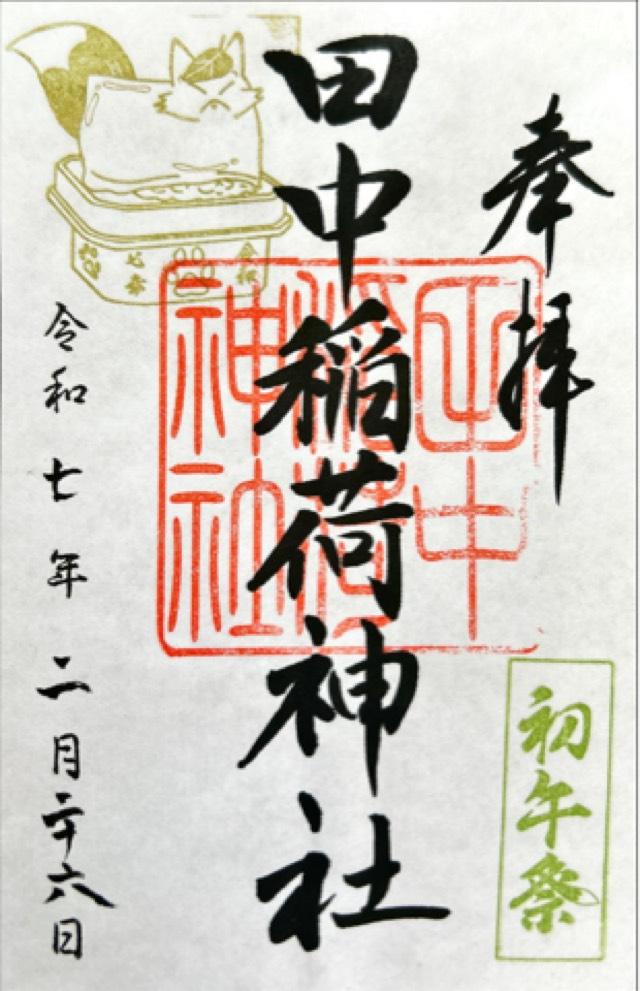 奉拝
田中稲荷神社
令和七年二月二十六日
田中
稲荷
神社
初午祭